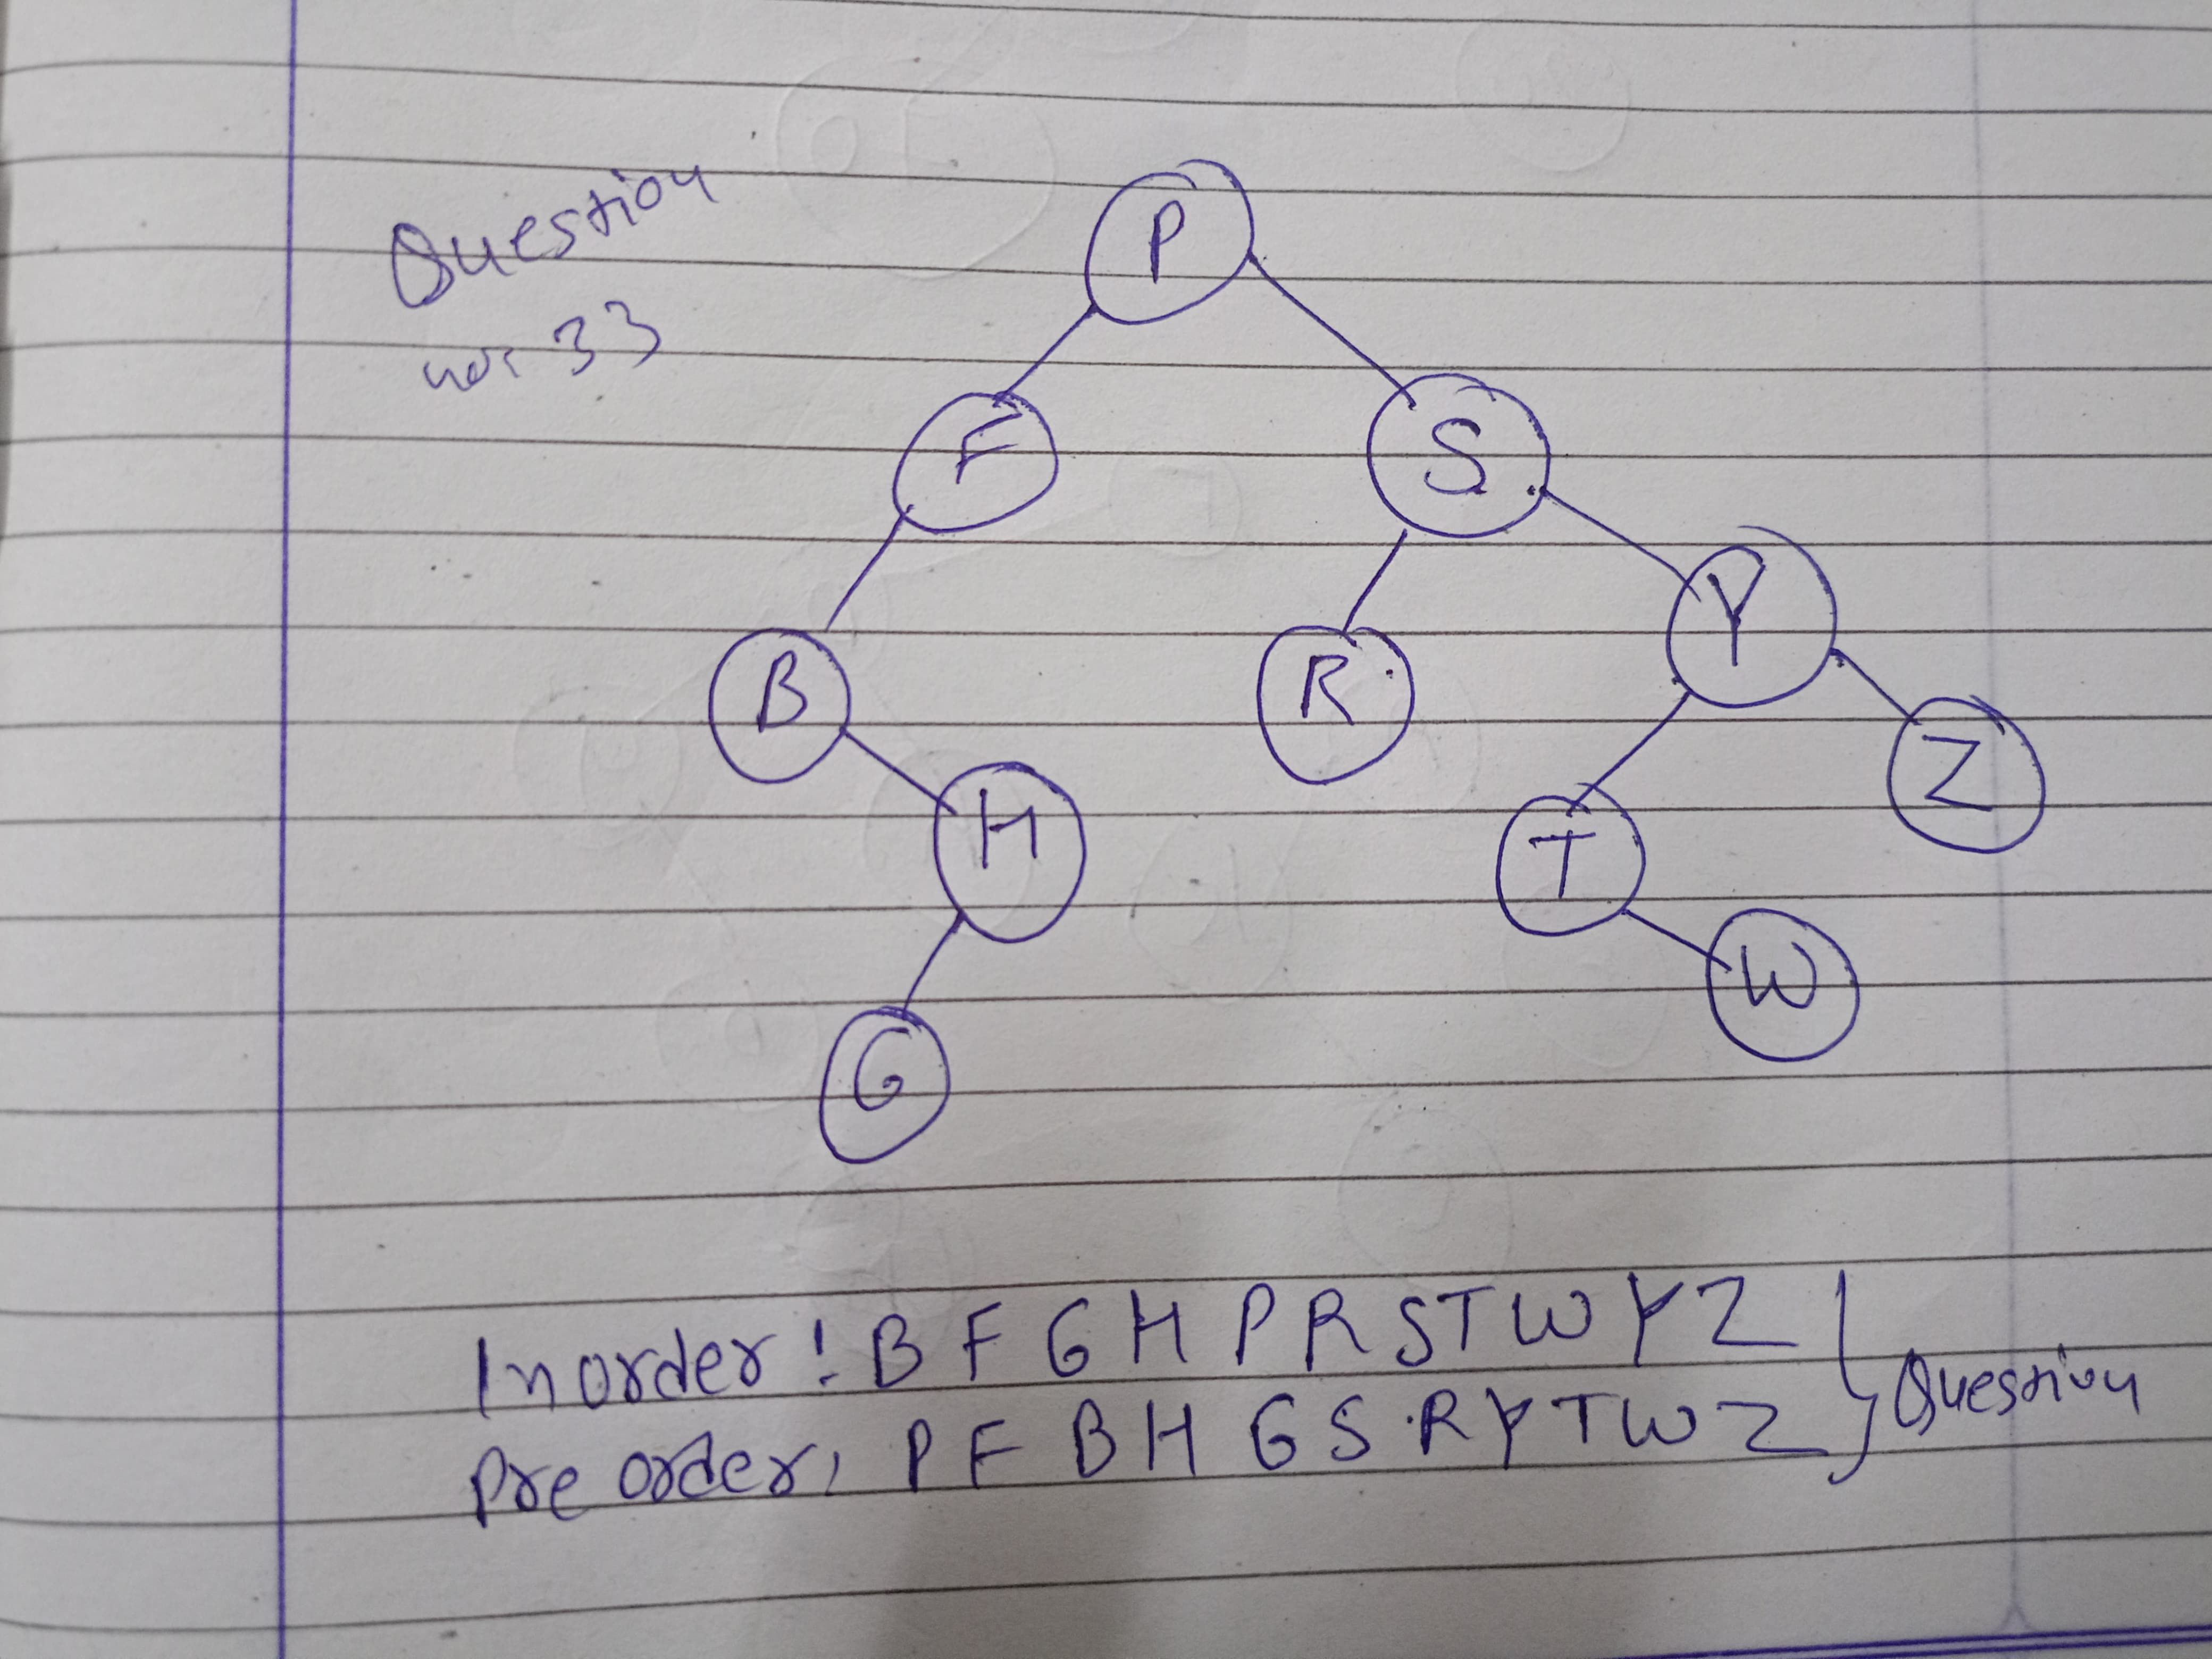 Question
no: 33
P
F S
B R Y
H T Z
G W
Inorder: B F G H P R S T W Y Z } Question
Pre order: P F B H G S R Y T W Z